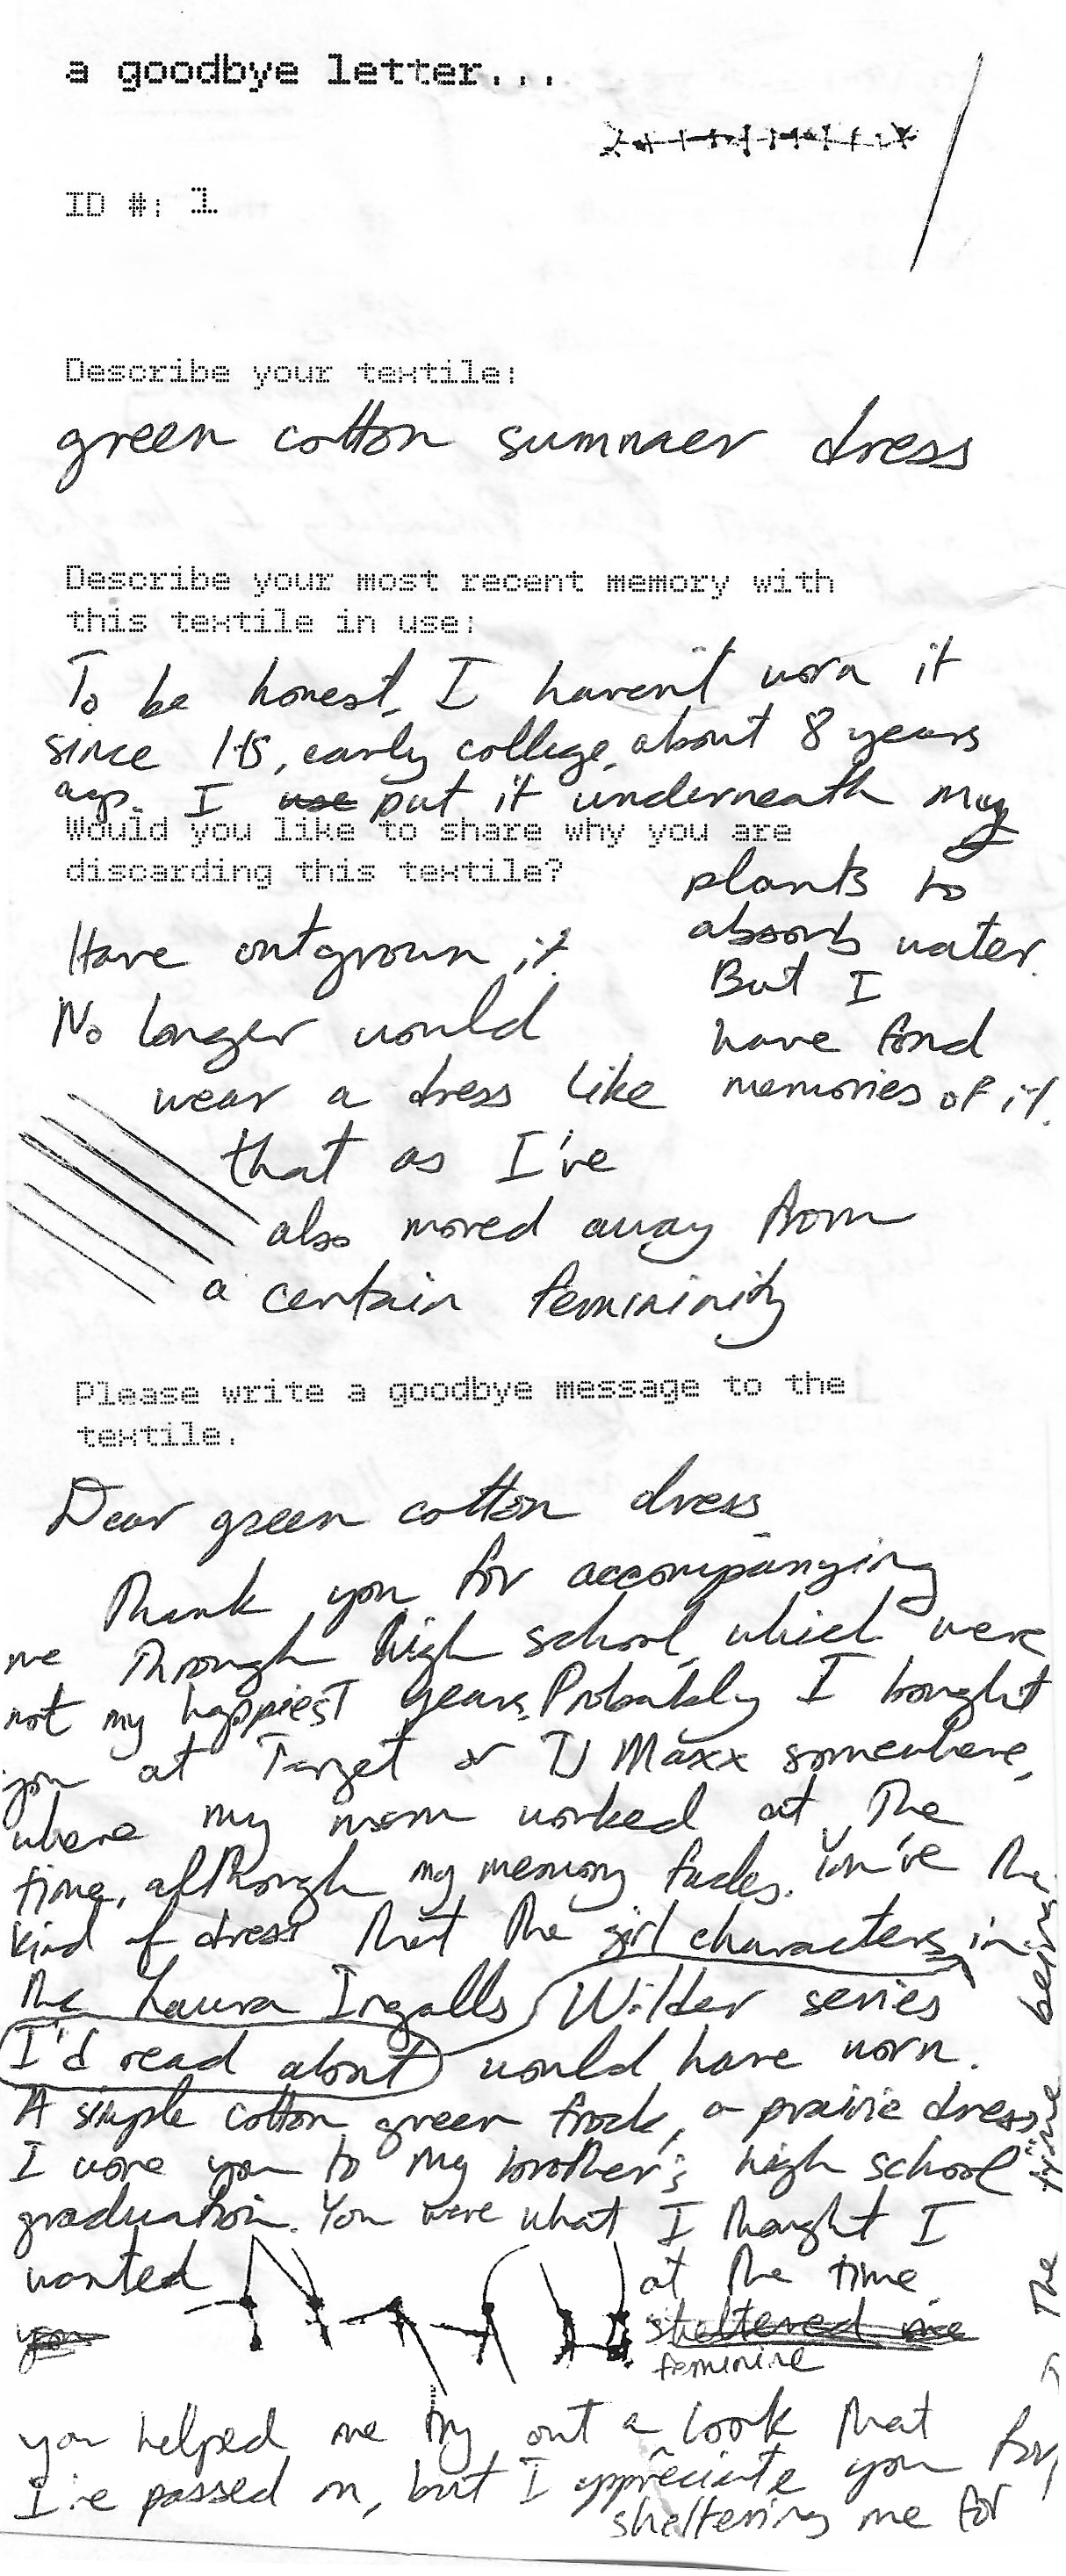 a goodbye letter...
ID #: 1
Describe your textile:
green cotton summer dress
Describe your most recent memory with
this textile in use:
To be honest, I haven't worn it
since HS, early college, about 8 years
ago. I use put it underneath my
plants to
absorb water.
But I
have fond
memories of it.
Would you like to share why you are
discarding this textile?
Have outgrown it.
No longer would
wear a dress like
that as I've
also moved away from
a certain femininity
Please write a goodbye message to the
textile.
Dear green cotton dress
Thank you for accompanying
me through high school, which were
not my happiest years. Probably I bought
you at Target or TJ Maxx somewhere,
where my mom worked at the
time, although my memory fades. You're the
kind of dress that the girl characters in
the Laura Ingalls Wilder series
I'd read about would have worn.
A simple cotton green frock, a prairie dress
I wore you to my brother's high school
graduation. You were what I thought I
wanted at the time
you sheltered me
feminine
you helped me try out a look that
I've passed on, but I appreciate you for
sheltering me for
the time being